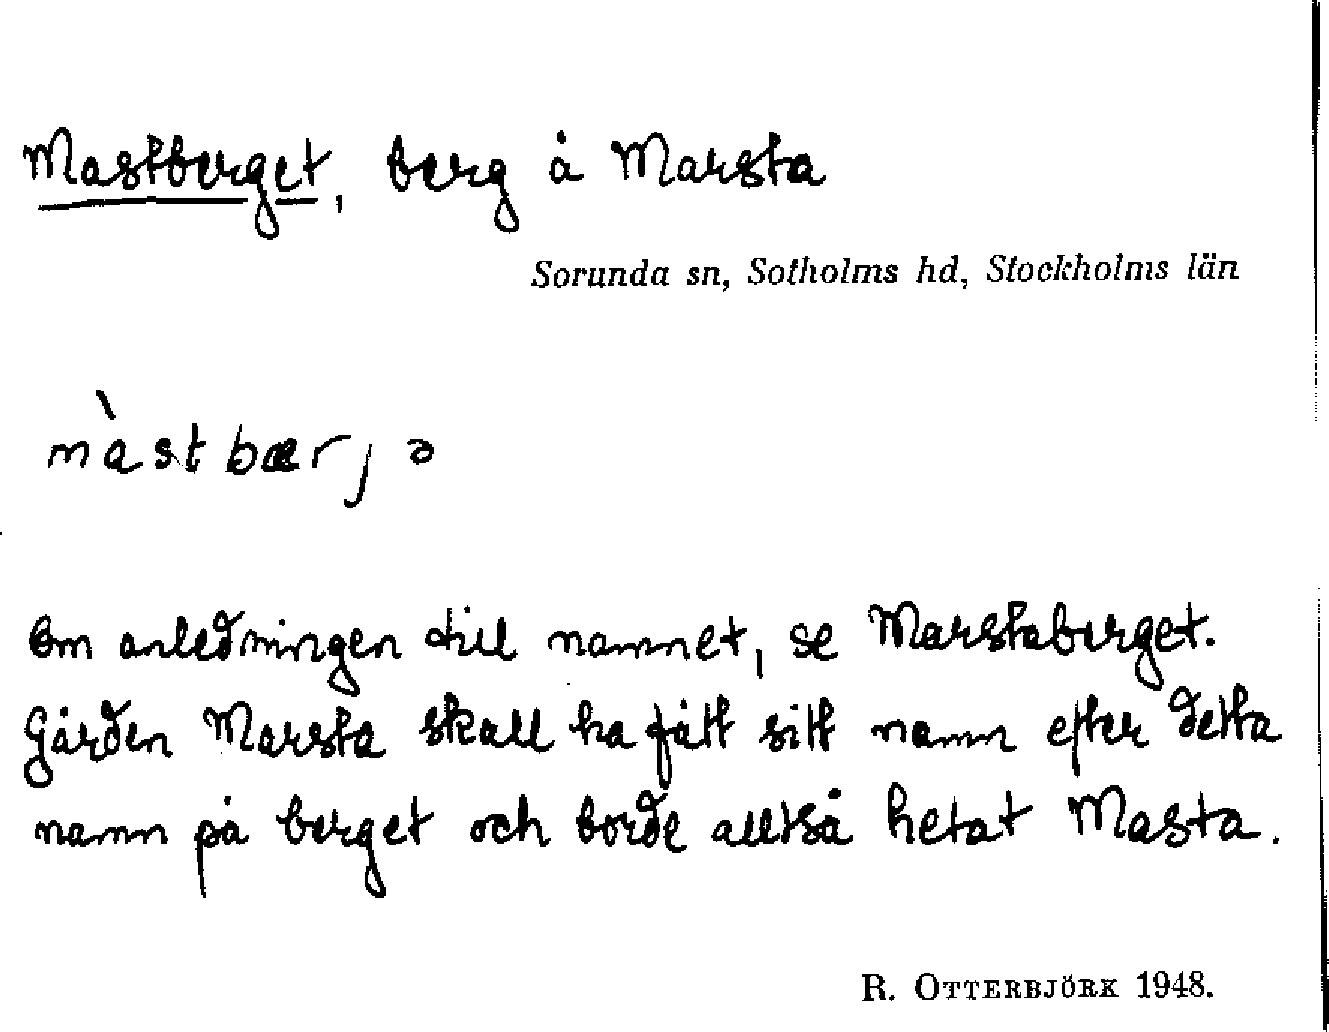 Mastberget, berg å Marsta
Sorunda sn, Sotholms hd, Stockholms län
màstbærjə
Om anledningen till namnet, se Marstaberget.
Gården Marsta skall ha fått sitt namn efter detta
namn på berget och borde alltså hetat Masta.
R. OTTERBJÖRK 1948.